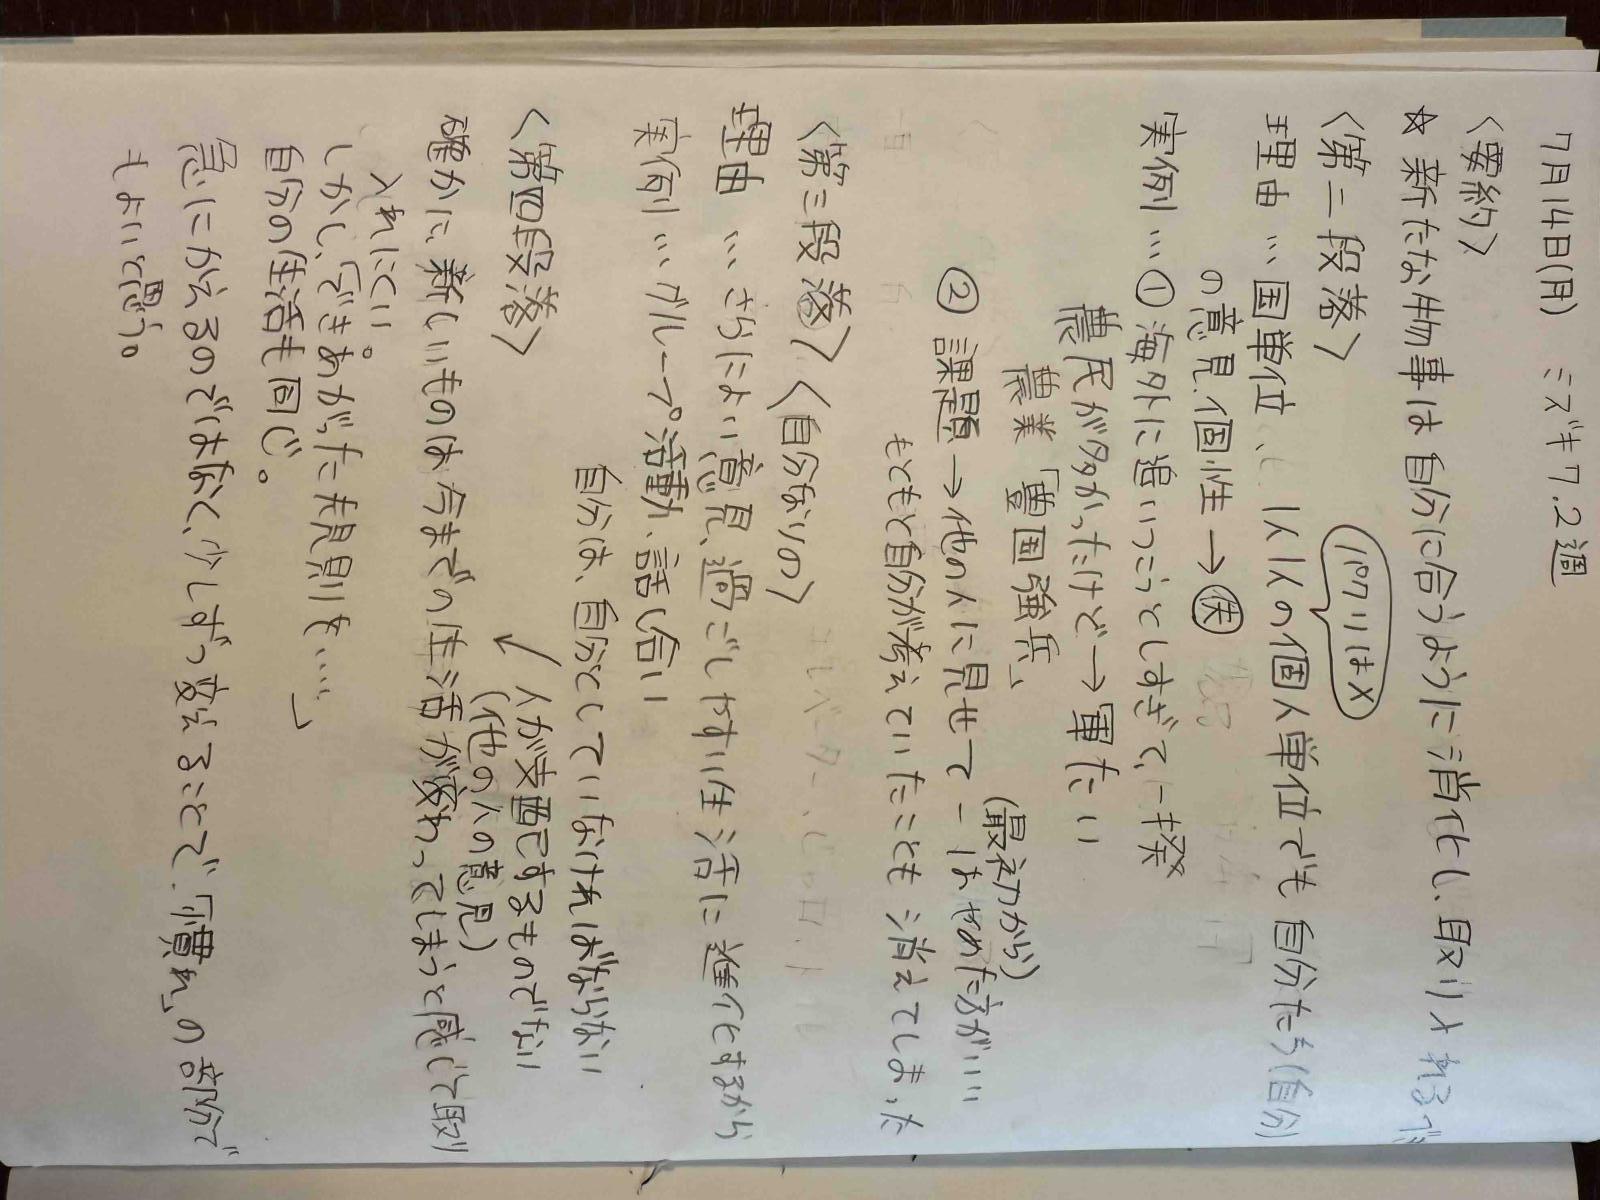 7月14日(月) ミズキ7.2週
<要約>
☆ 新たな物事は自分に合うように消化し、取り入れるべき
パクリは×
<第二段落>
理由 … 国単位、1人1人の個人単位でも 自分たち(自分)
の意見、個性→失
実例 … ① 海外に追いつこうとしすぎて、一揆
農民が多かったけど→軍たい
農業 「富国強兵」
(最初から)
② 課題→他の人に見せて - はやめた方がいい
もともと自分が考えていたことも 消えてしまった
<第三段落> <自分なりの>
理由 … さらによい意見、過ごしやすい生活に進化とするから
実例 … グループ活動、話し合い
自分は、自分としていなければならない
人が支配するものでない
(他の人の意見)
<第四段落>
確かに、新しいものは今までの生活が変わってしまうと感じて取り
入れにくい。
しかし、「できあがった規則を……」
自分の生活も同じ。
急にかえるのではなく、少しずつ変えることで、「慣れ」の部分で
もよいと思う。